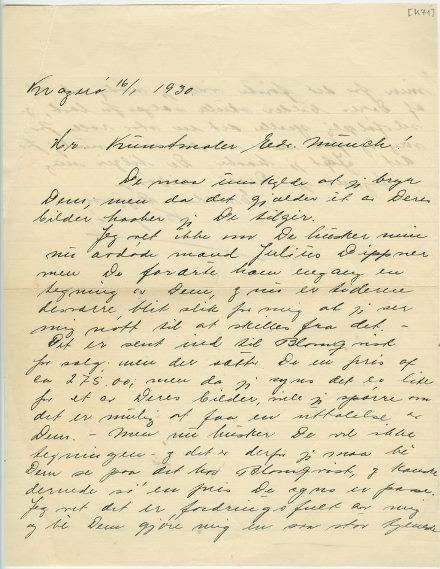 [K71]
Kragerø 16/1 1930.
Hr. Kunstmaler Edv. Munch!
De maa unskylde at jeg bryr
Dem, men da det gjælder et av Deres
bilder haaber jeg De tilgir.
Jeg vet ikke om De husker min
nu avdøde mand Julius Dippner
men De forærte ham engang en
tegning av Dem, og nu er tiderne
desværre blit slik for mig at jeg ser
mig nødt til at skilles fra det. –
Det er sent ind til Blomqvist
for salg, men der sætter De en pris af
ca 275.00, men da jeg syns det er lite
for et av Deres bilder, vilde jeg spørre om
det er mulig at faa en uttalelse av
Dem. – Men nu husker De vel ikke
tegningen – og det er derfor jeg maa be
Dem se paa det hos Blomqvist, og kanske
derunde så en pris De syns er passe.
Jeg vet det er fordringsfult av mig
og be Dem gjøre mig en saa stor tjeneste